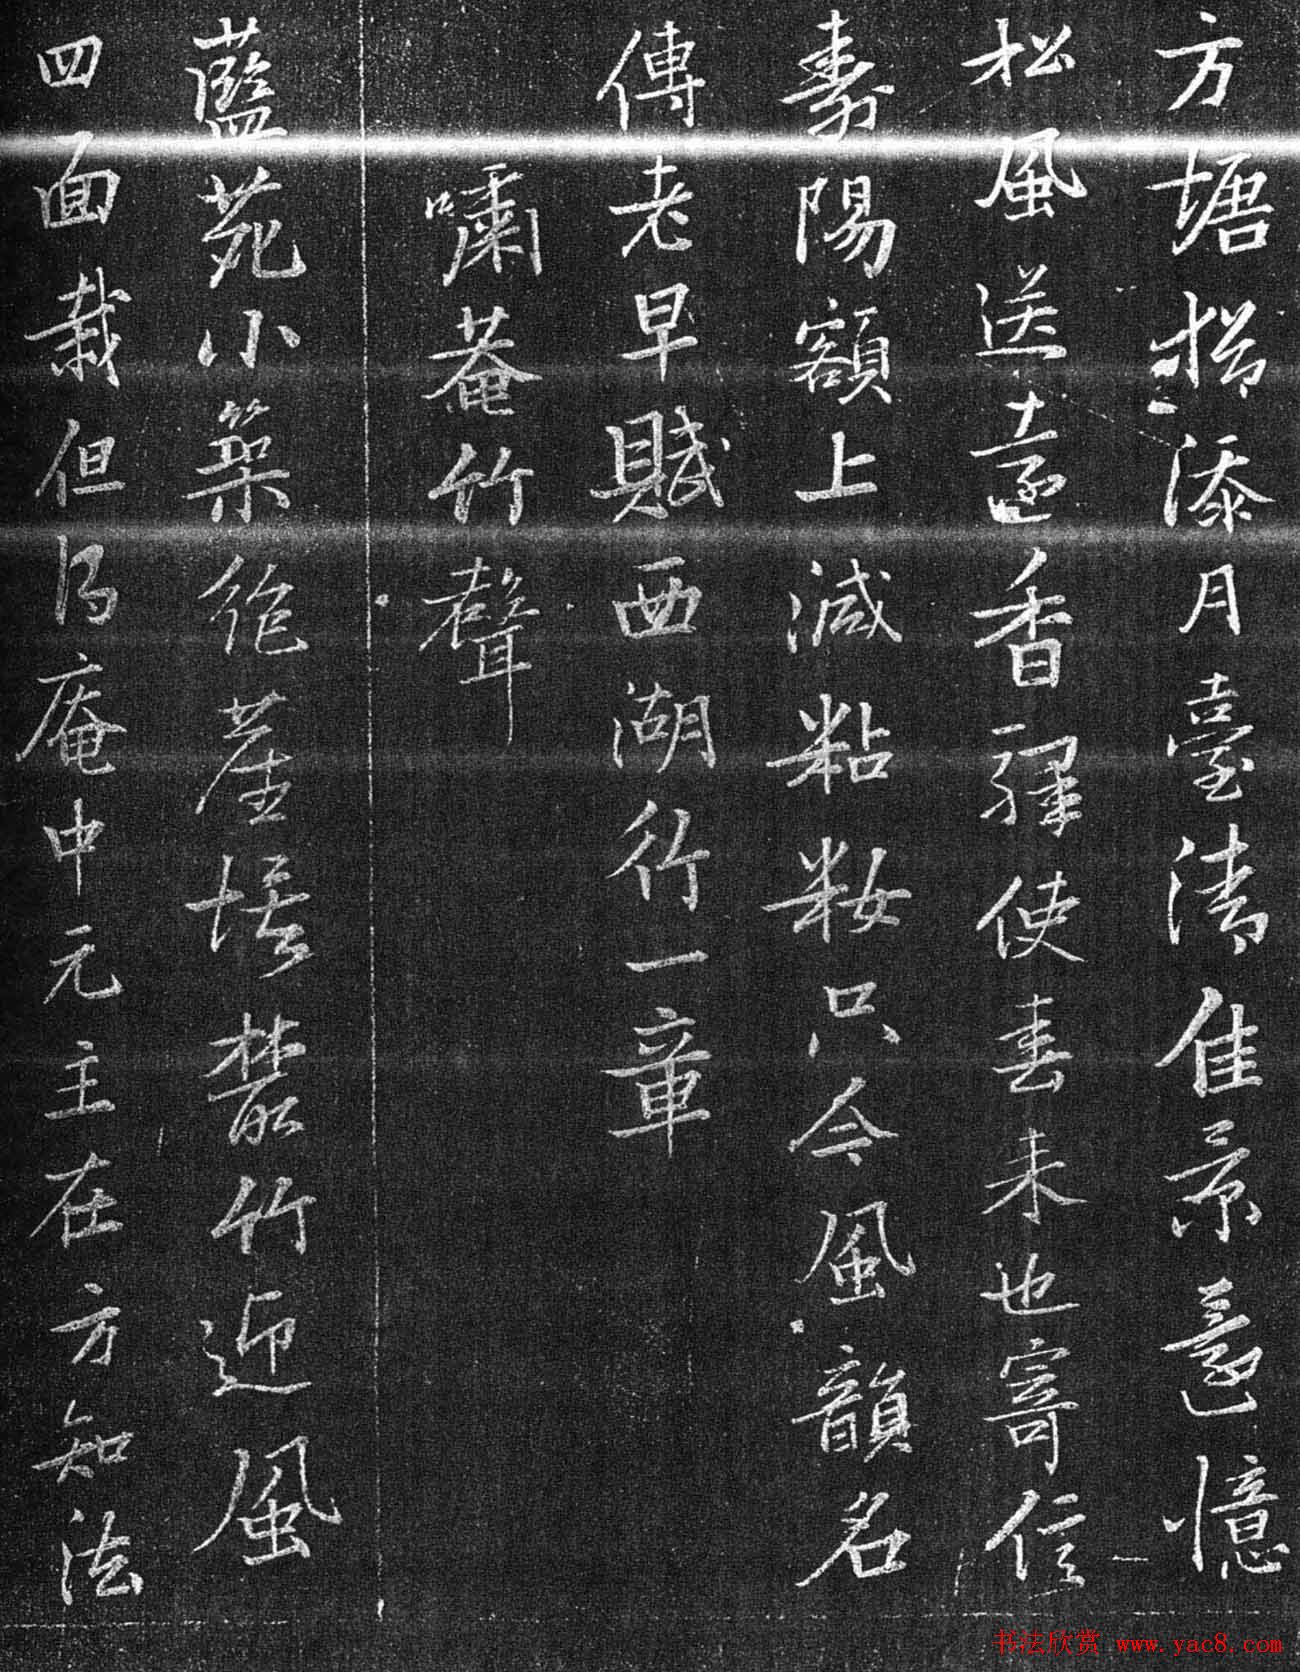 方塘相添月臺清佳景意憶
松風送遠香驛使春来也寄信
壽陽額上減粘粧只今風韻名
傳老早賦西湖行一章
嘯菴竹聲
藍苑小築絶崖叢竹近風
四面栽但得庵中元主在方知法
书法欣赏 www.yac8.com